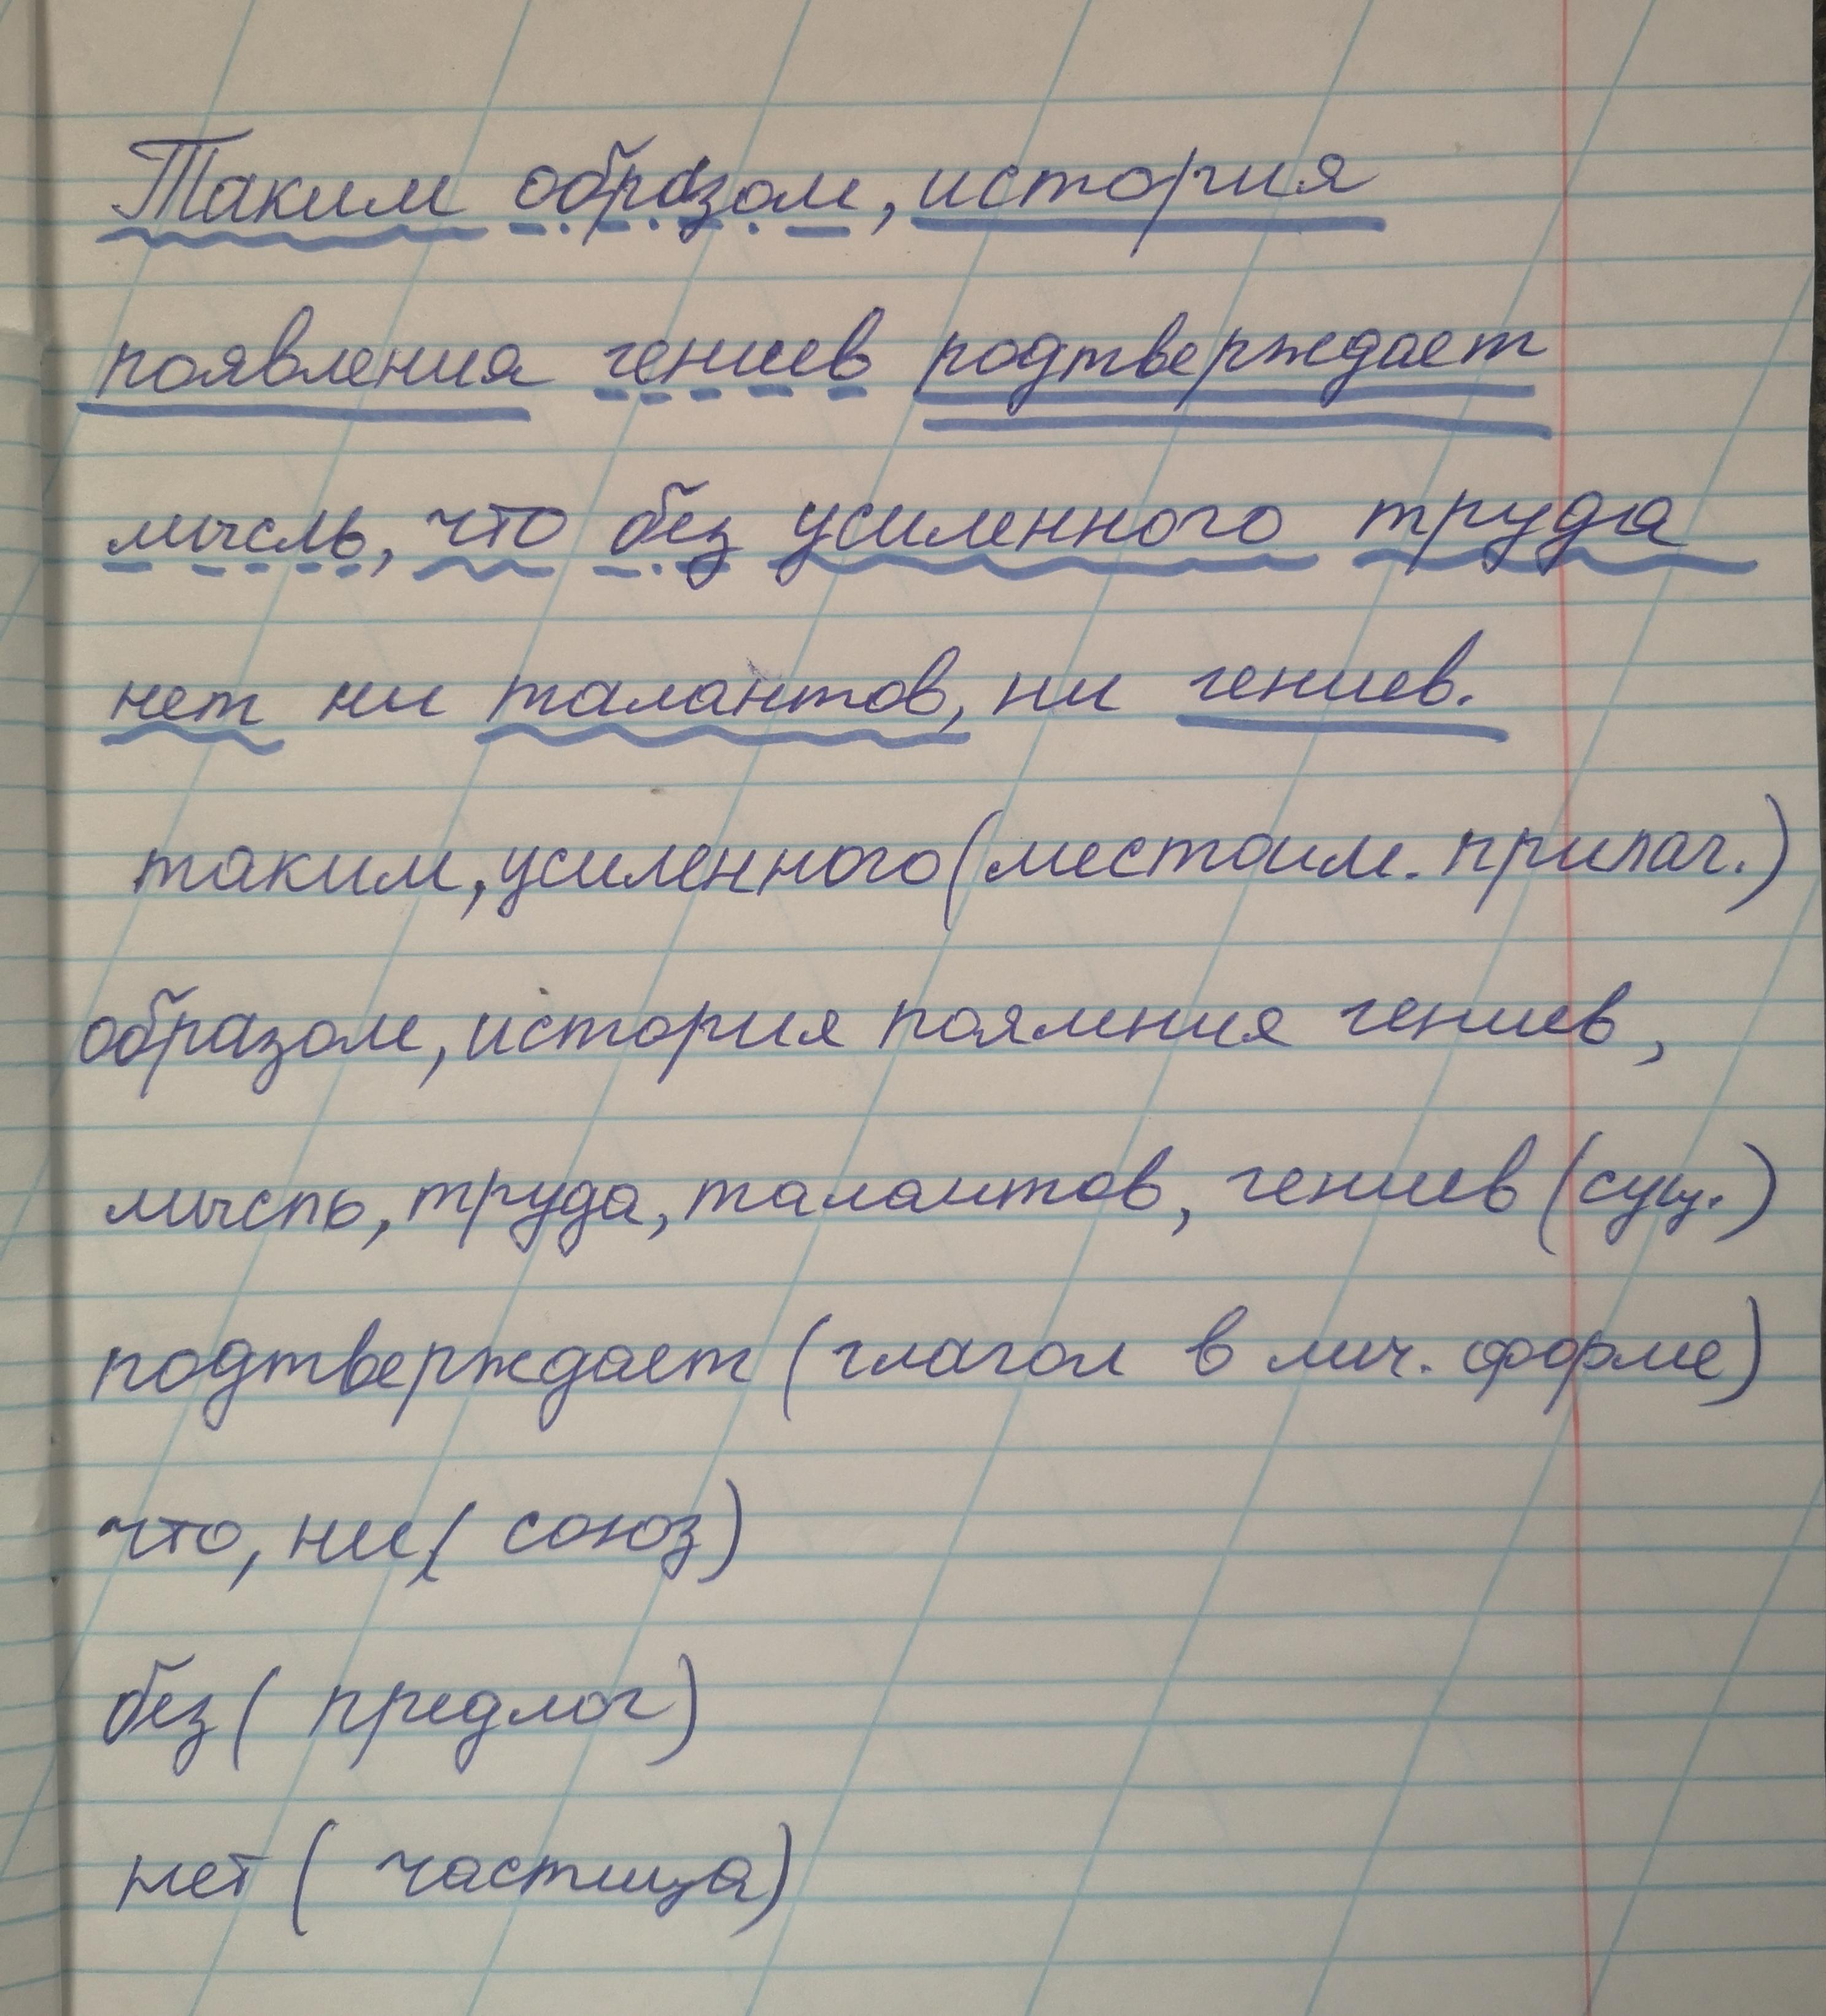 Таким образом, история
появления гениев подтверждает
мысль, что без усиленного труда
нет ни талантов, ни гениев.
таким, усиленного (местоим. прилаг.)
образом, история поямения гениев,
мысль, труда, талантов, гениев (сущ.)
подтверждает (глагол в лич. форме)
что, ни (союз)
без (предлог)
нет (частица)